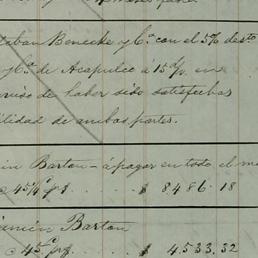 taban Benecke y Cª con el 5% desto
y Cª de Acapulco á 15 d/v. en
haber sido satisfechas
ilidad de ambas partes.
Barton - á pagar en todo el m
$ 8486.18
Barton
$ 4533.32